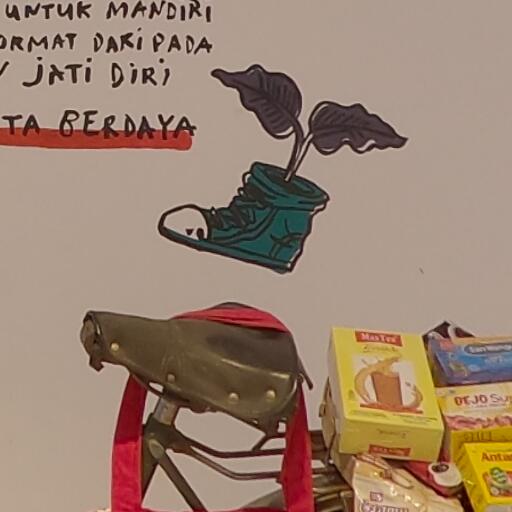 UNTUK MANDIRI
ORMAT DARIPADA
JATI DIRI
TA BERDAYA
Max Tea
BEJO
Antan